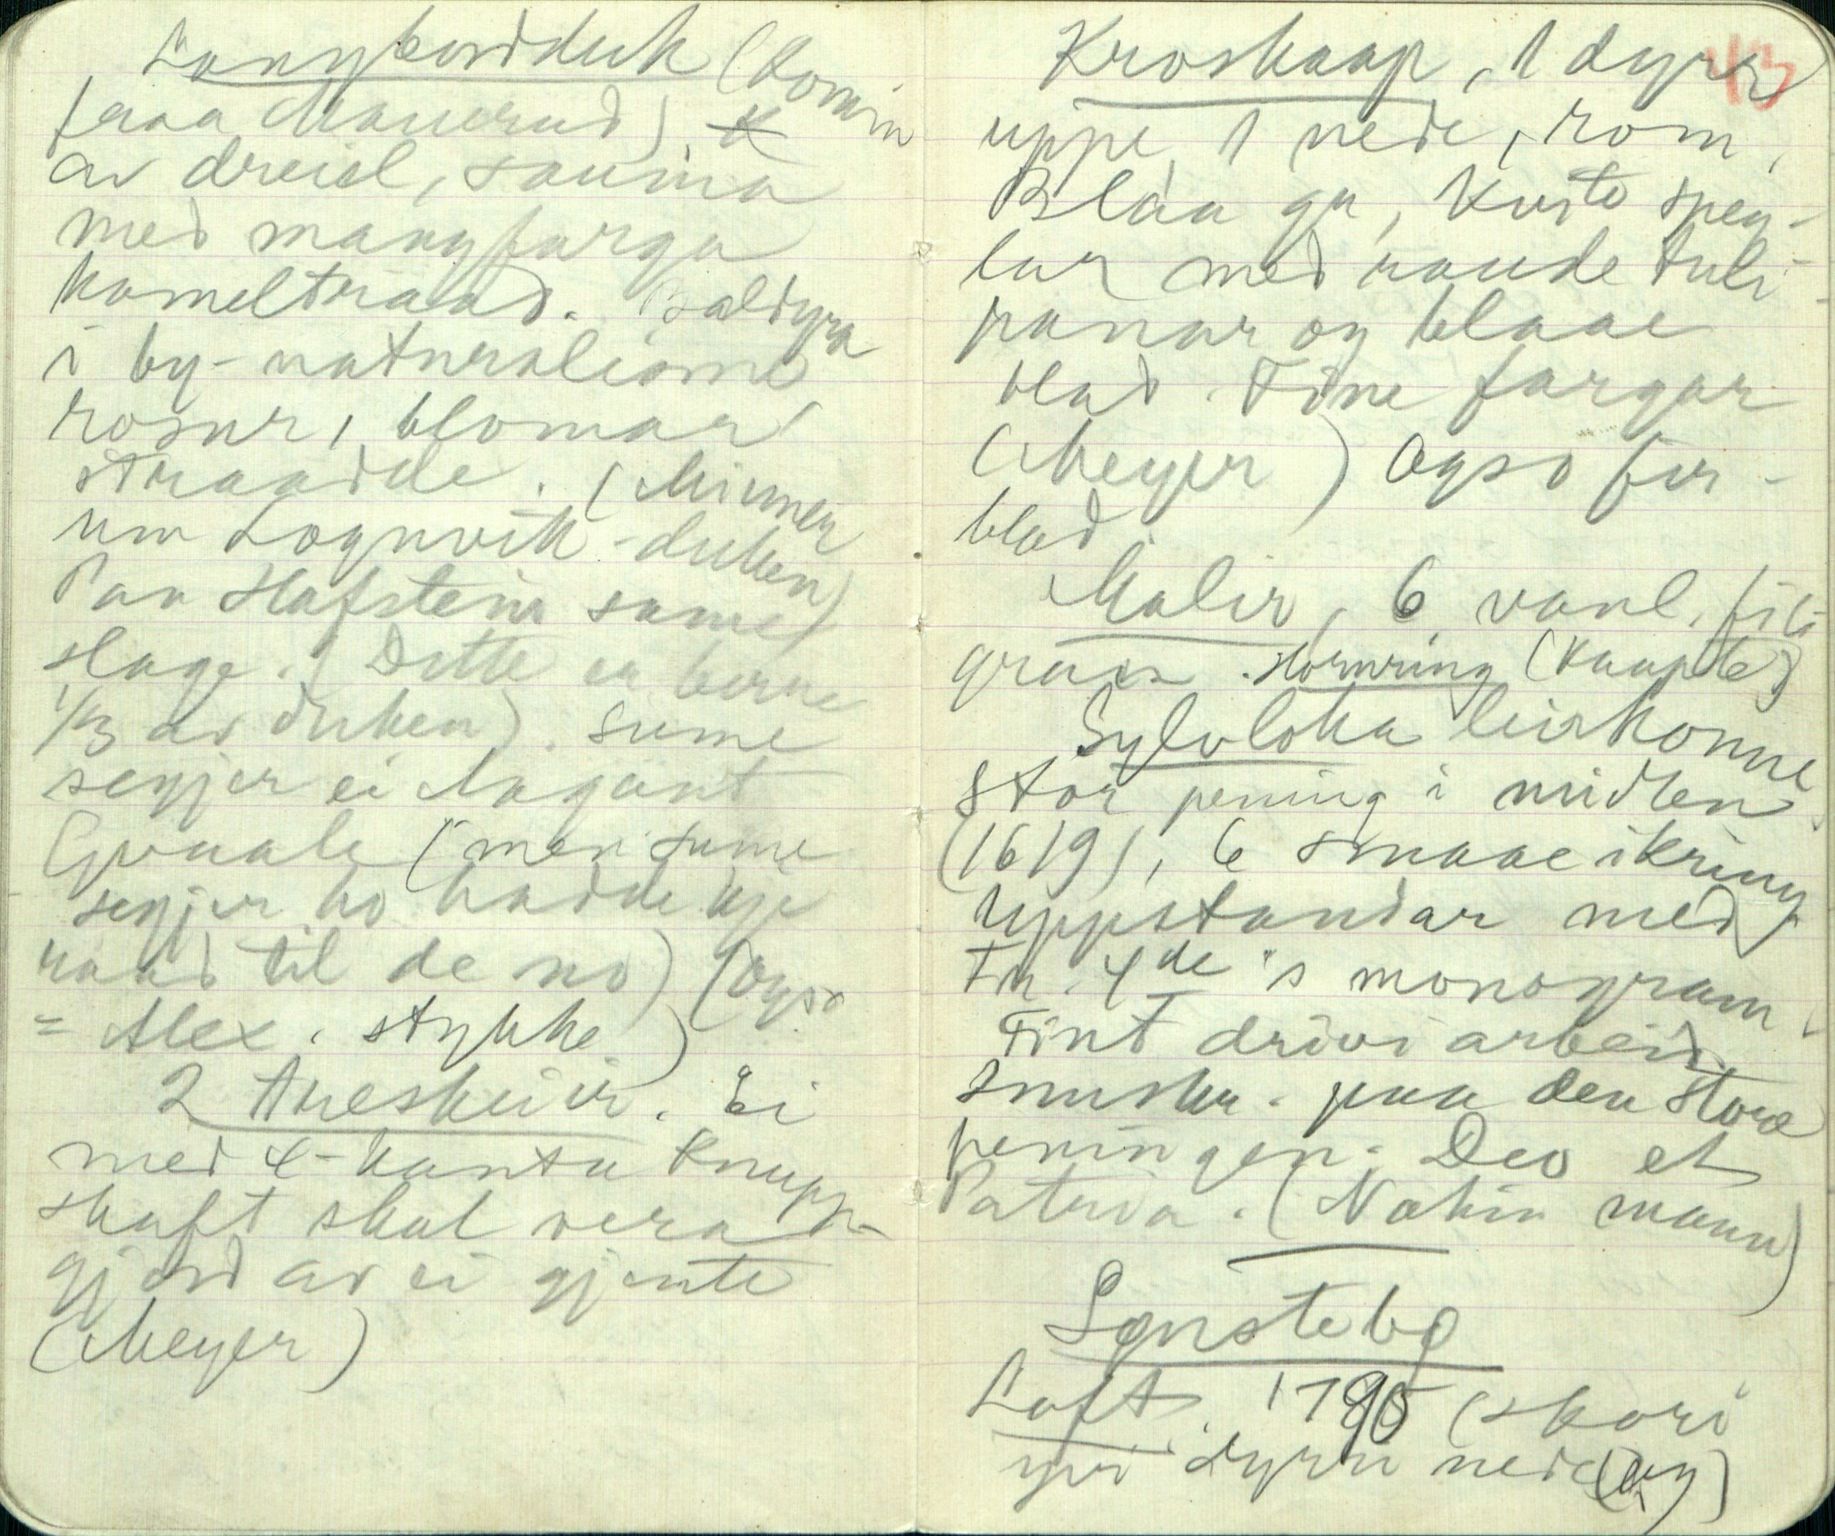 Langbordduk (Komin
fraa Maurerud) K
av dreiel, sauma
med mangfarga
kameltraad. Baldyra
i by-naturalisme
rosur, blomar
straadde. (Minner
um Lognvik-duken)
Paa Hafstein same
slage. (Dette er berre
1/3 av duken). Sume
segjer ei Margånt
Gvaale (men sume
segjer ho hadde kje
raad til de no) (Ogso
= Alex. stykke)
2 Treskeier. Ei
med 4-kanta knupp-
skaft skal vera
gjord av ei gjente
(Meyer)
43
Kroskaap, 1 dyrr
uppe, 1 nede, rom,
Blaa gr, kvite speg-
lar med raude tuli-
panar og blaae
blad. Fine fargar
(Meyer) Ogso fir-
blad.
Malir, 6 vanl. fili
graan. Hornring (Kaapte)
Sylvloka leirkonne
Stor pening i midten
(1619), 6 smaae ikring
Uppstandar med
Fr. 4de's monogram.
Fint drivi arbeid
Innskr. paa den store
peningen: Deo et
Patria. (Nökin mann)
Lønstebø
Loft. 1795 (skori
yvi dyrri nede(og)